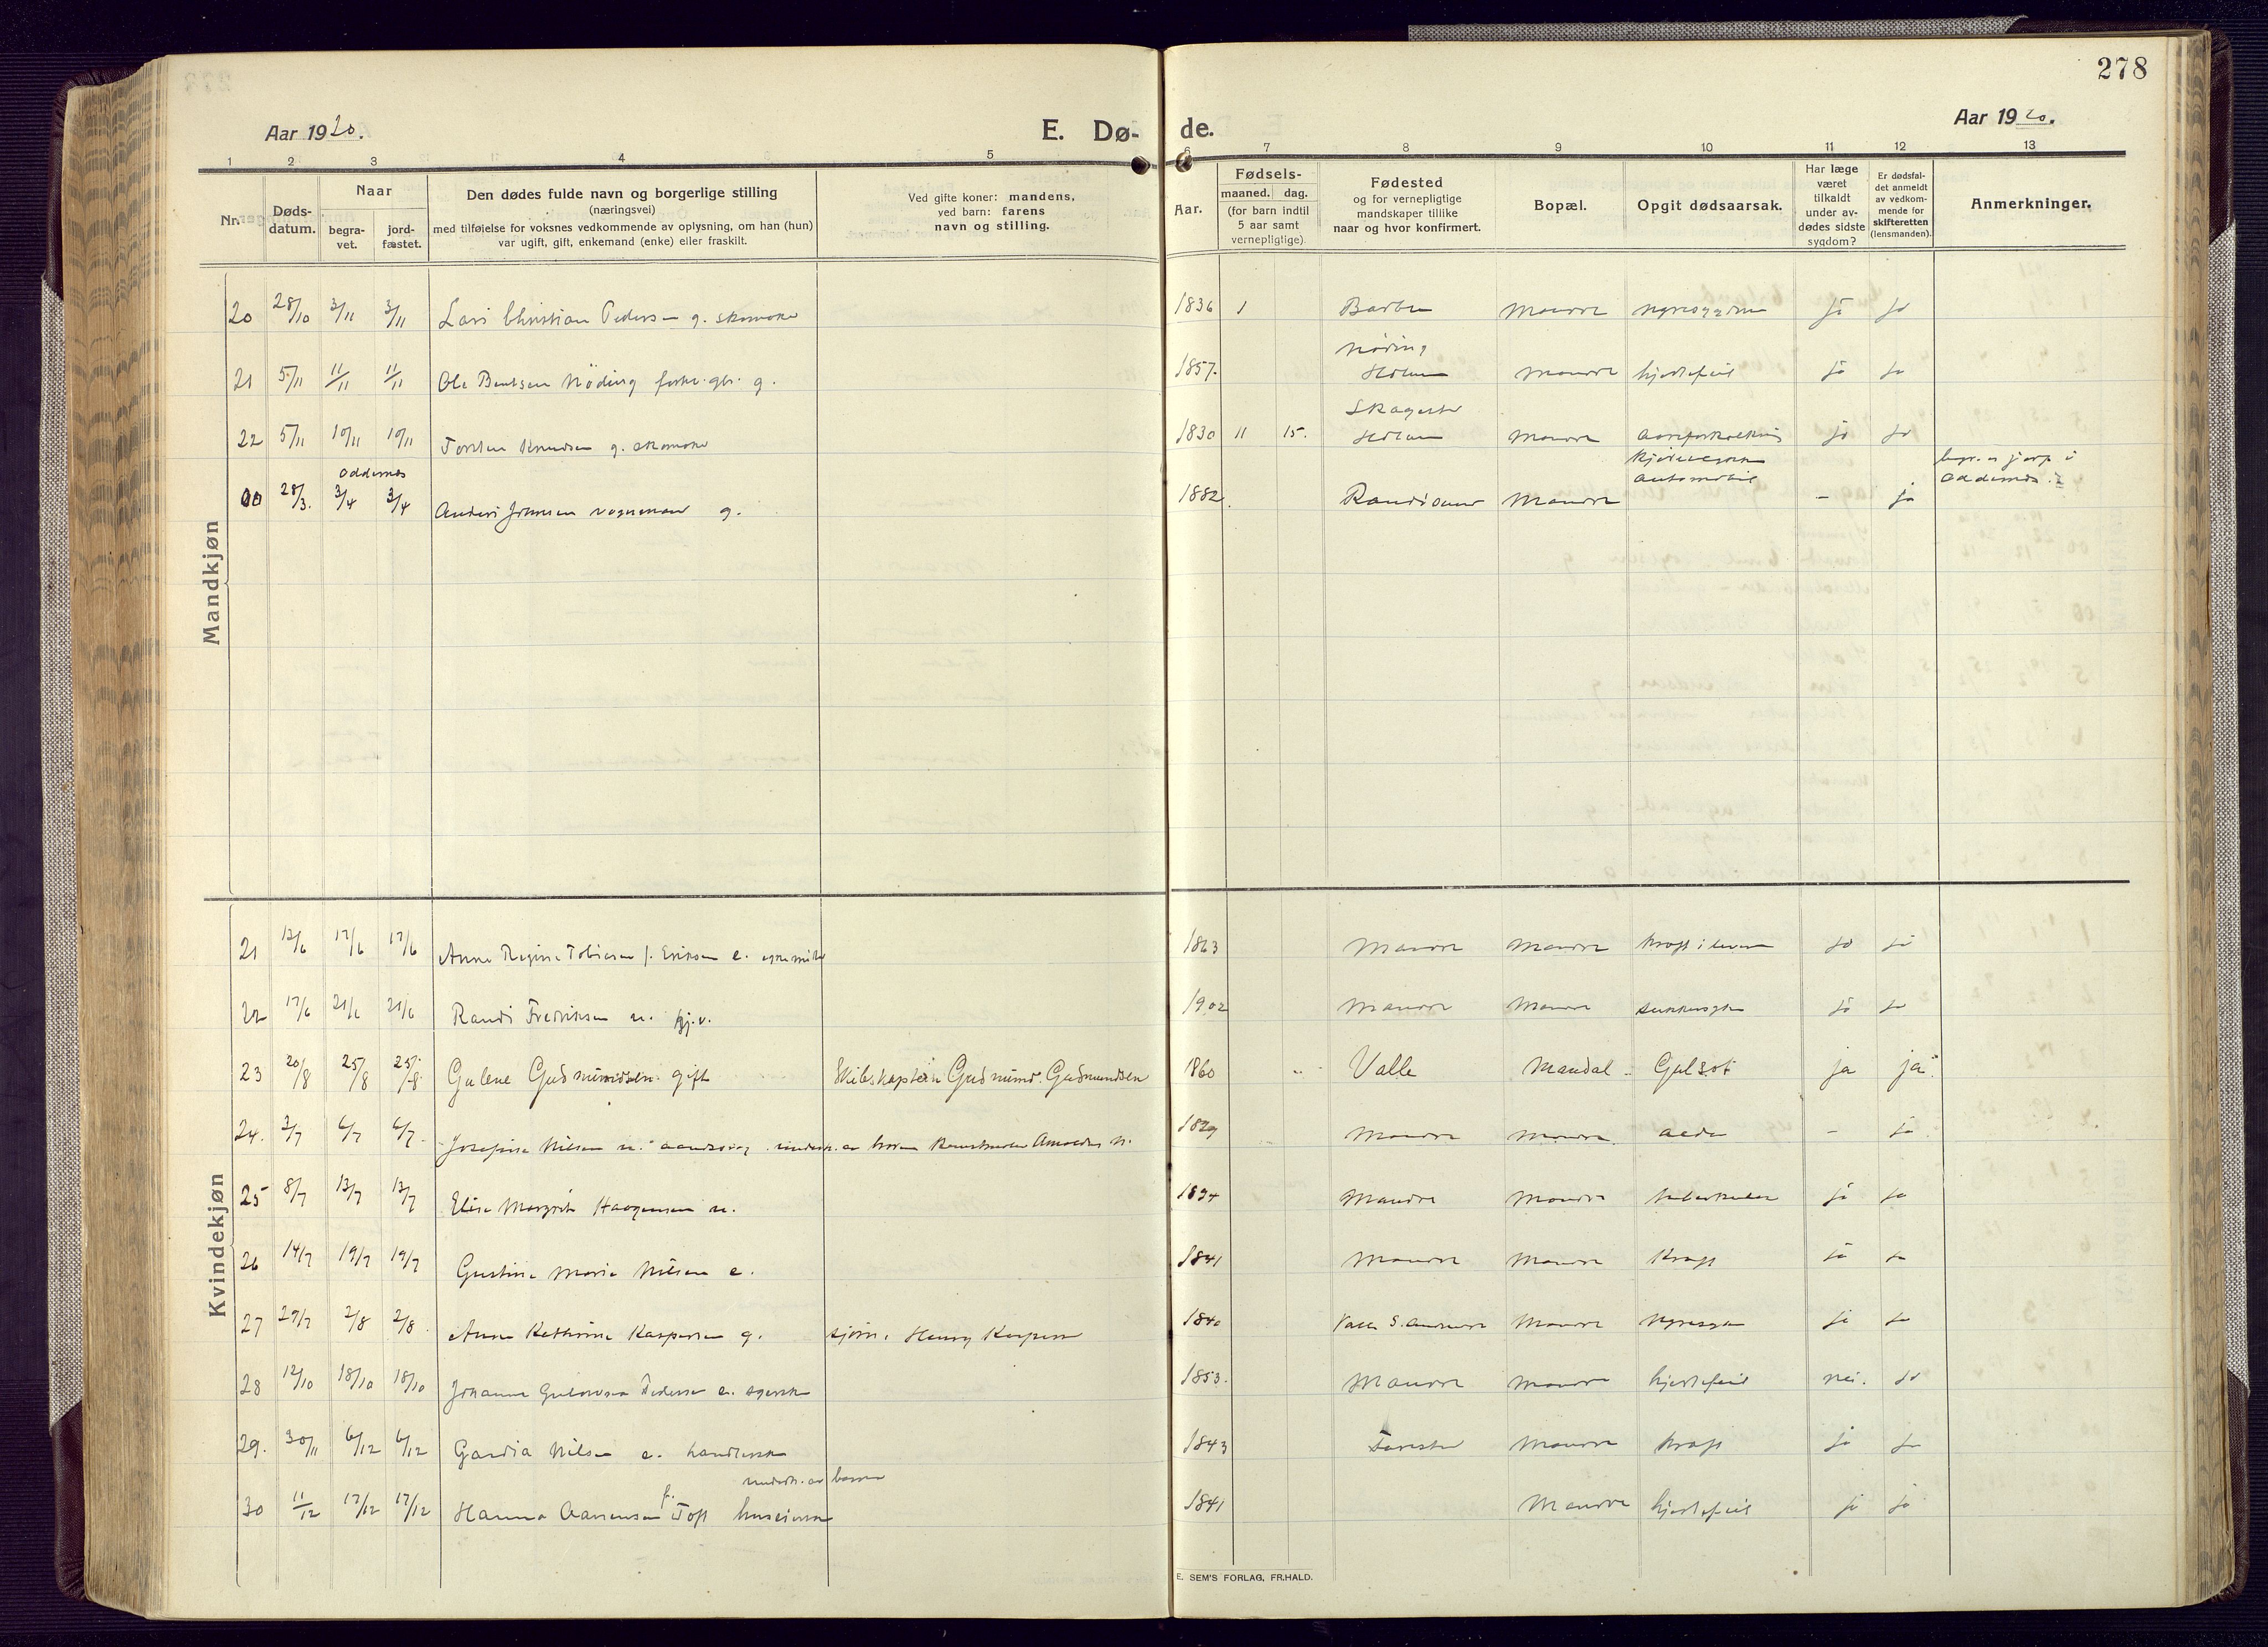 278
Aar 1920.
E. Dø-
de.
Aar 1920.
1 2 3 4 5 6 7 8 9 10 11 12 13
Nr.
Døds-
datum.
Naar
begra-
vet.
jord-
fæstet.
Den dødes fulde navn og borgerlige stilling
(næringsvei)
med tilføielse for voksnes vedkommende av oplysning, om han (hun)
var ugift, gift, enkemand (enke) eller fraskilt.
Ved gifte koner: mandens,
ved barn: farens
navn og stilling.
Aar.
Fødsels-
maaned. dag.
(for barn indtil
5 aar samt
vernepligtige).
Fødested
og for vernepligtige
mandskaper tillike
naar og hvor konfirmert.
Bopæl.
Opgit dødsaarsak.
Har læge
været
tilkaldt
under av-
dødes sidste
sygdom?
Er dødsfal-
det anmeldt
av vedkom-
mende for
skifteretten
(lensmanden).
Anmerkninger.
Mandkjøn
20 28/10 3/11 3/11 Lars Christian Pedersen g. skomaker 1836 1 Barbu Mandal nyresygdom ja ja
Nøding
21 5/11 11/11 11/11 Ole Bentsen Nöding g. 1857. Holum Mandal hjertefeil ja ja
Skagestad
22 5/11 10/11 10/11 Torsten Knudsen g. skomaker 1830 11 15. Holum Mandal aareforkalkning ja ja
Oddernes
automobil
00 28/3. 3/4 3/4 Anders Johnsen vognmand g. 1882. Randøsund Mandal – ja Oddernes.
Kvindekjøn
21 12/6 17/6 17/6 Anne Regine Tobiasen f. Eriksen e. 1863 Mandal Mandal kræft i leveren ja ja
22 17/6 21/6 21/6 Randi Fredriksen u. hj.v. 1902 Mandal Mandal sukkersyke ja ja
23 20/8 25/8 25/8 Gulene Gudmundsen. gift Skibskaptein Gudmund Gudmundsen 1860 " Valle Mandal Gulsot ja ja.
24. 3/7 6/7 6/7 Josefine Nilsen u. aandssvag underh. av broren 1829 Mandal Mandal. alder – ja
25 8/7 13/7 13/7 Elise Margrete Haagensen u. Mandal Mandal tuberkulose ja ja
26 14/7 19/7 19/7 Gustine Marie Nilsen e. 1841 Mandal Mandal Kræft ja ja
27 27/7 2/8 2/8 Anne Kathrine Kaspersen g. sjøm. Henry Kaspersen 1840 Valle S. Audnedal Mandal Nyresyke ja ja
28 12/10 18/10 18/10 Johanne Pedersen e. 1853. Mandal Mandal hjertefeil nei. ja
29. 30/11 6/12 6/12 Gardia Nilsen e. handlerske 1843 Farestad Mandal Kræft ja ja
underh. av barna
30 11/12 17/12 17/12 Hanna Aanensen f. Toft huseierske 1841 Mandal hjertefeil ja ja
E. SEM'S FORLAG, FR.HALD.